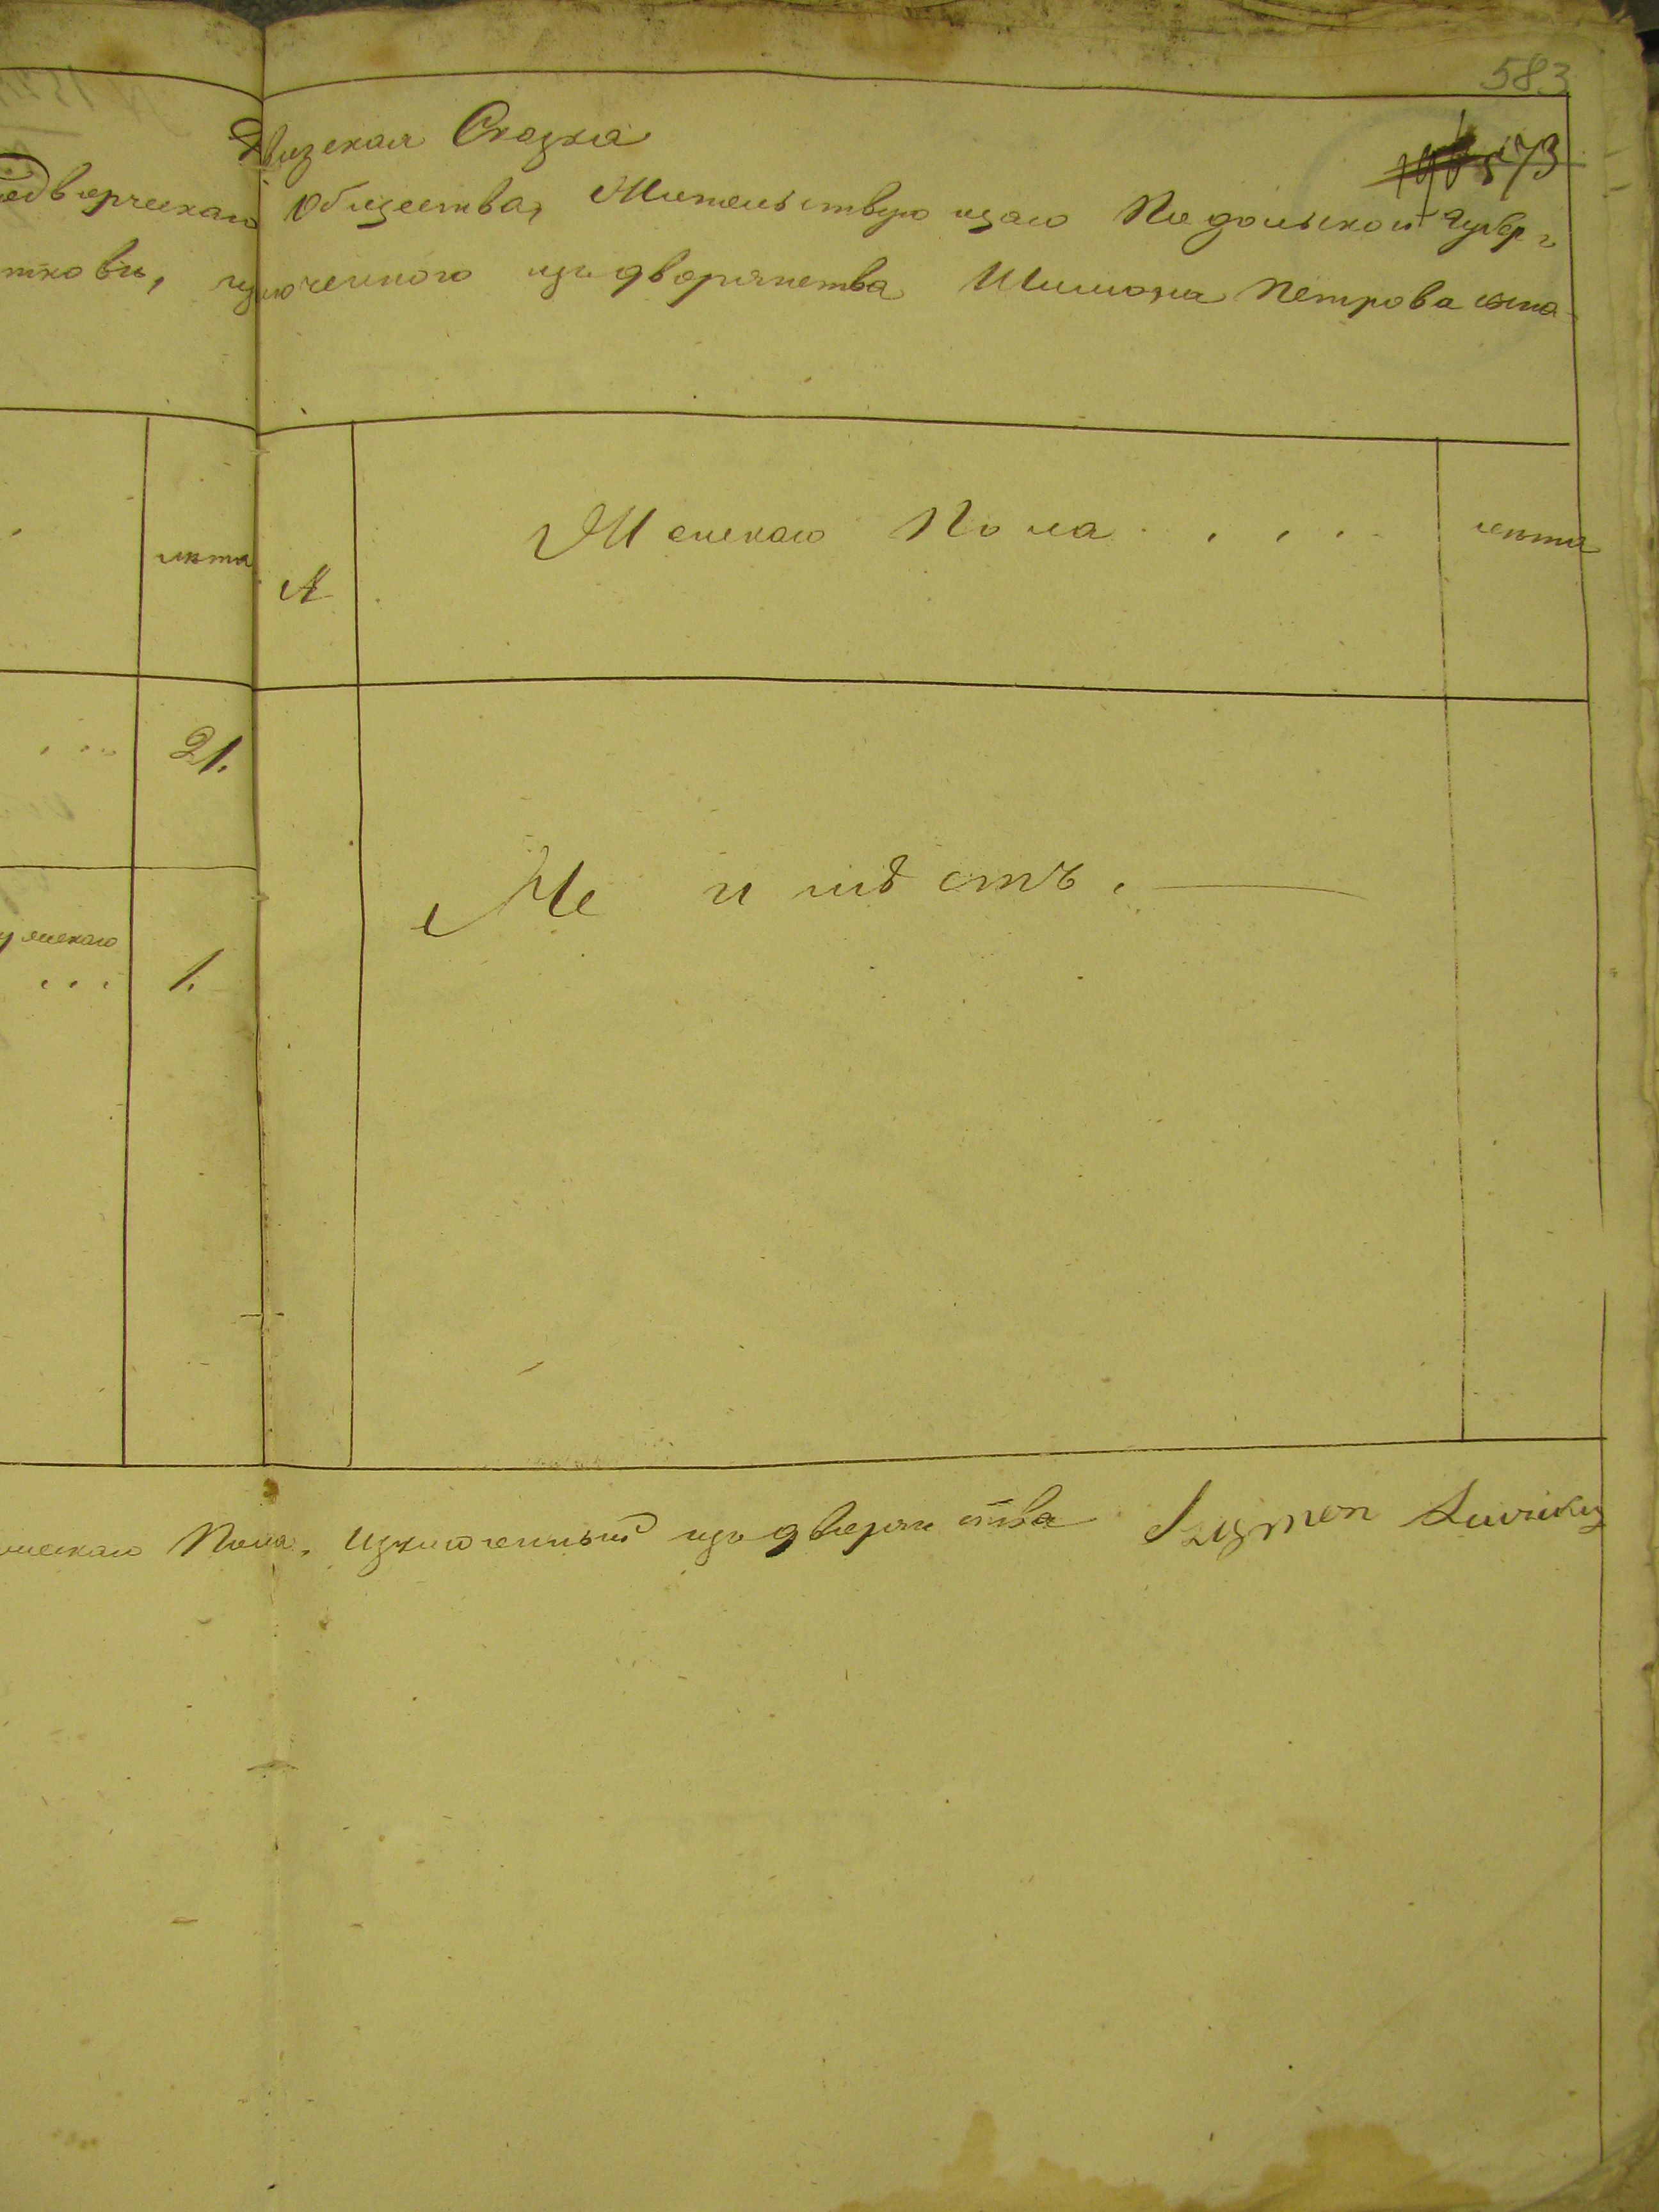 583
573
Визская Сказка
едворческаго Общества, Жительствующаго Подольской Губер-
тковѣ, изключенного изъ дворянства Шимона Петрова сына
лѣта
№
Женскаго Пола . . . .
лѣта
21.
Не имѣетъ.
ужескаго
1.
жескаго Пола, Изключенный изъ дворянства Szymon